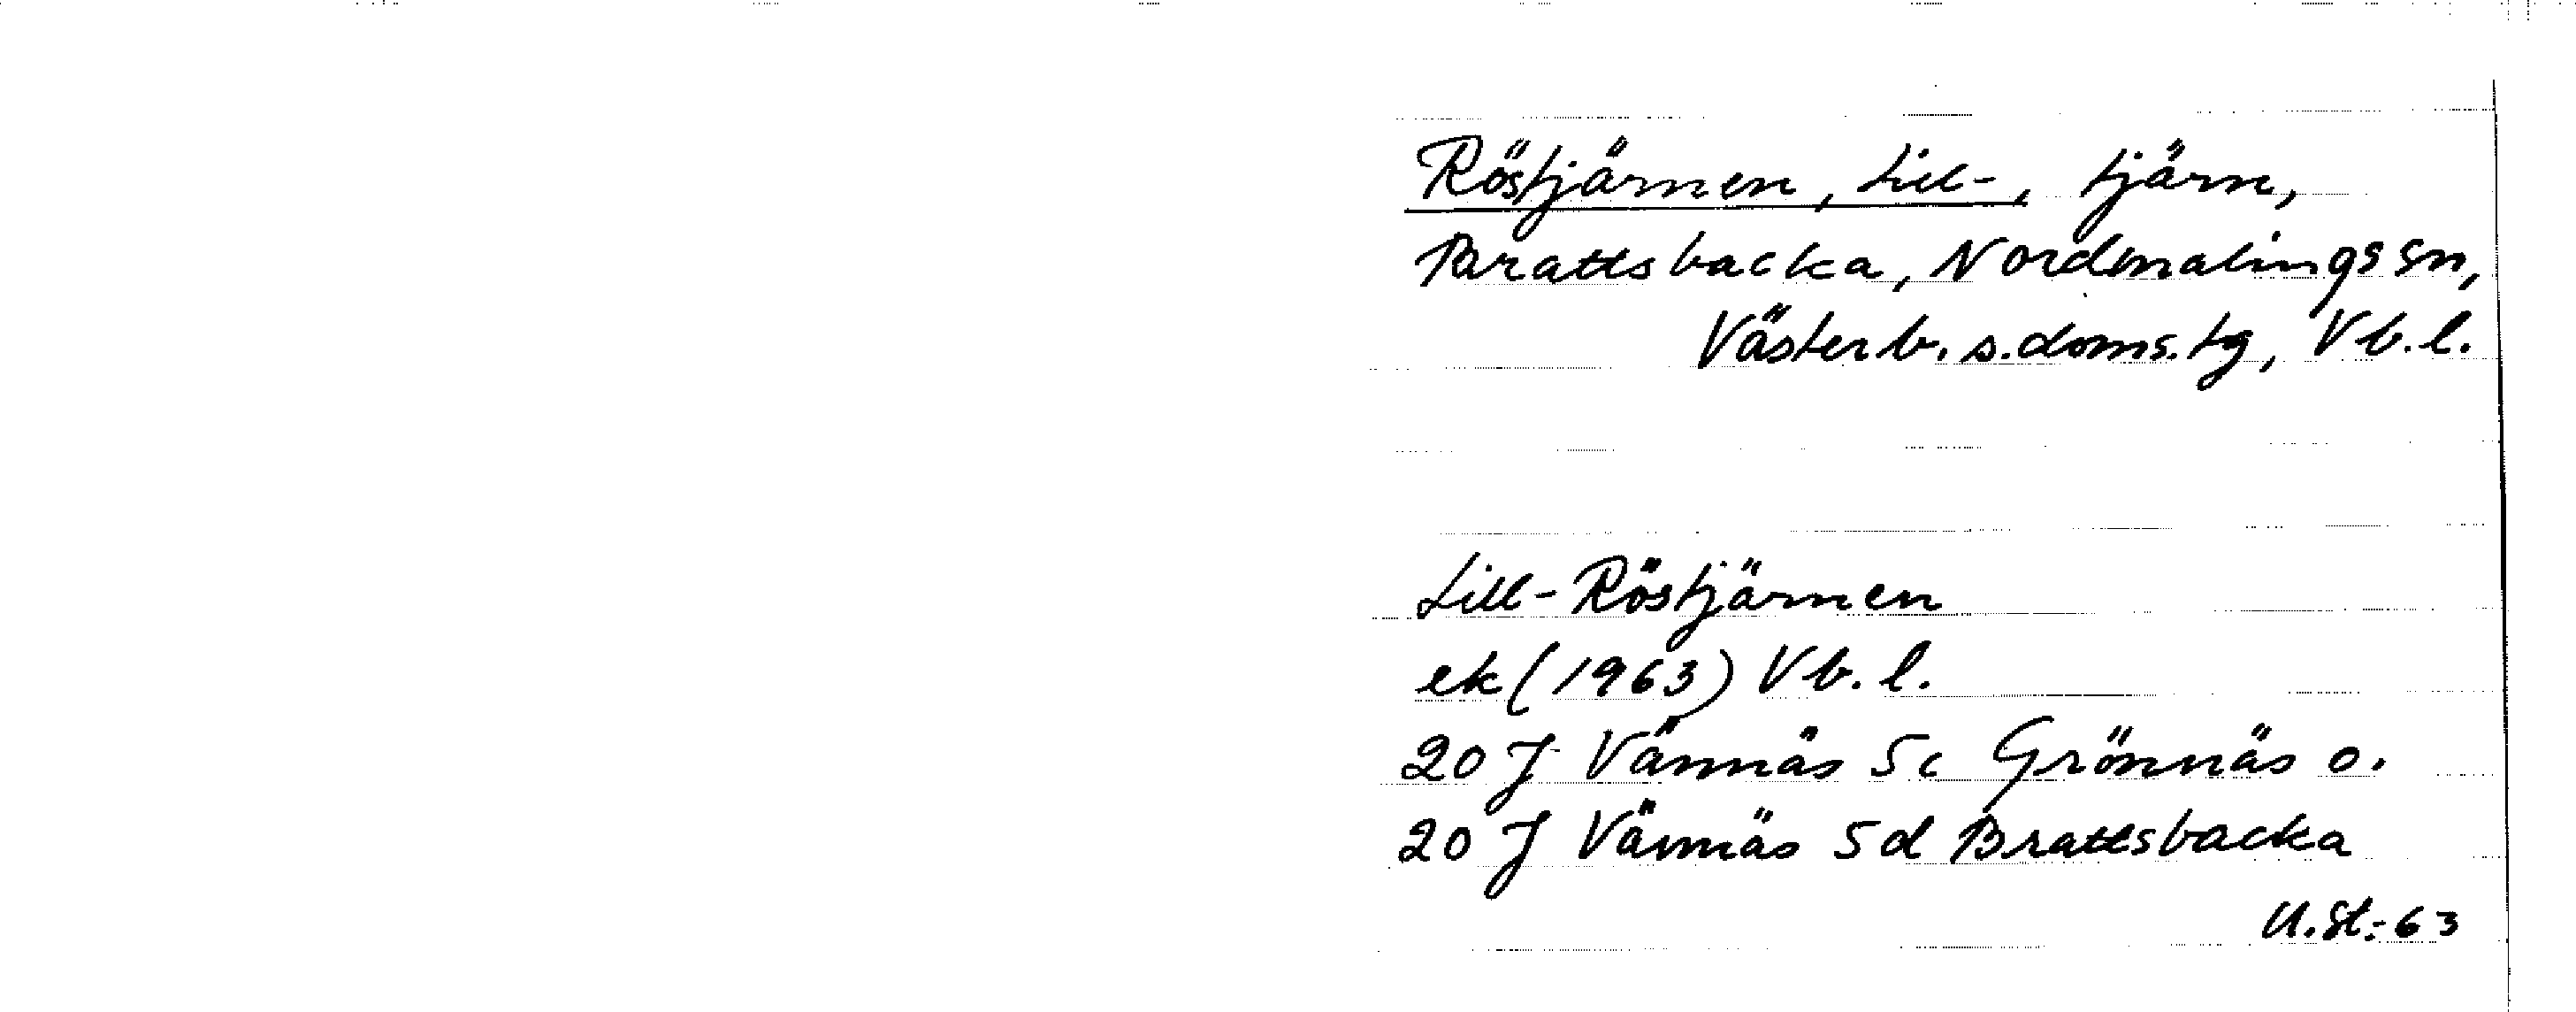 Röstjärnen, Lill-, tjärn,
Brattsbacka, Nordmalings sn,
Västerb. s. doms. tg, Vb. l.
Lill-Röstjärnen
ek (1963) Vb. l.
20 J Vännäs 5c Grönnäs o.
20 J Vännäs 5d Brattsbacka
U.St:-63